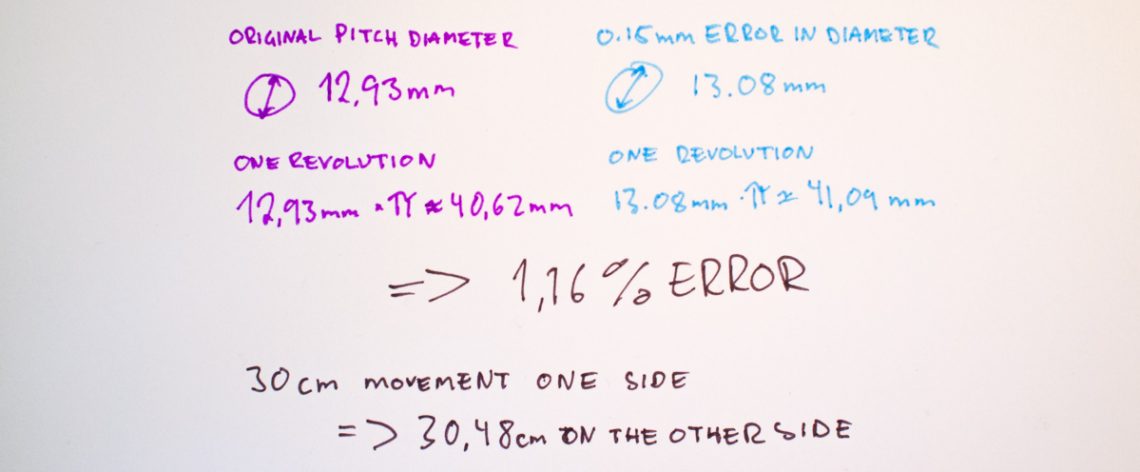 ORIGINAL PITCH DIAMETER
12,93mm
ONE REVOLUTION
12,93mm · π ≈ 40,62mm
0.15mm ERROR IN DIAMETER
13.08mm
ONE REVOLUTION
13.08mm · π ≈ 41,09 mm
=> 1,16% ERROR
30cm MOVEMENT ONE SIDE
=> 30,48cm ON THE OTHER SIDE